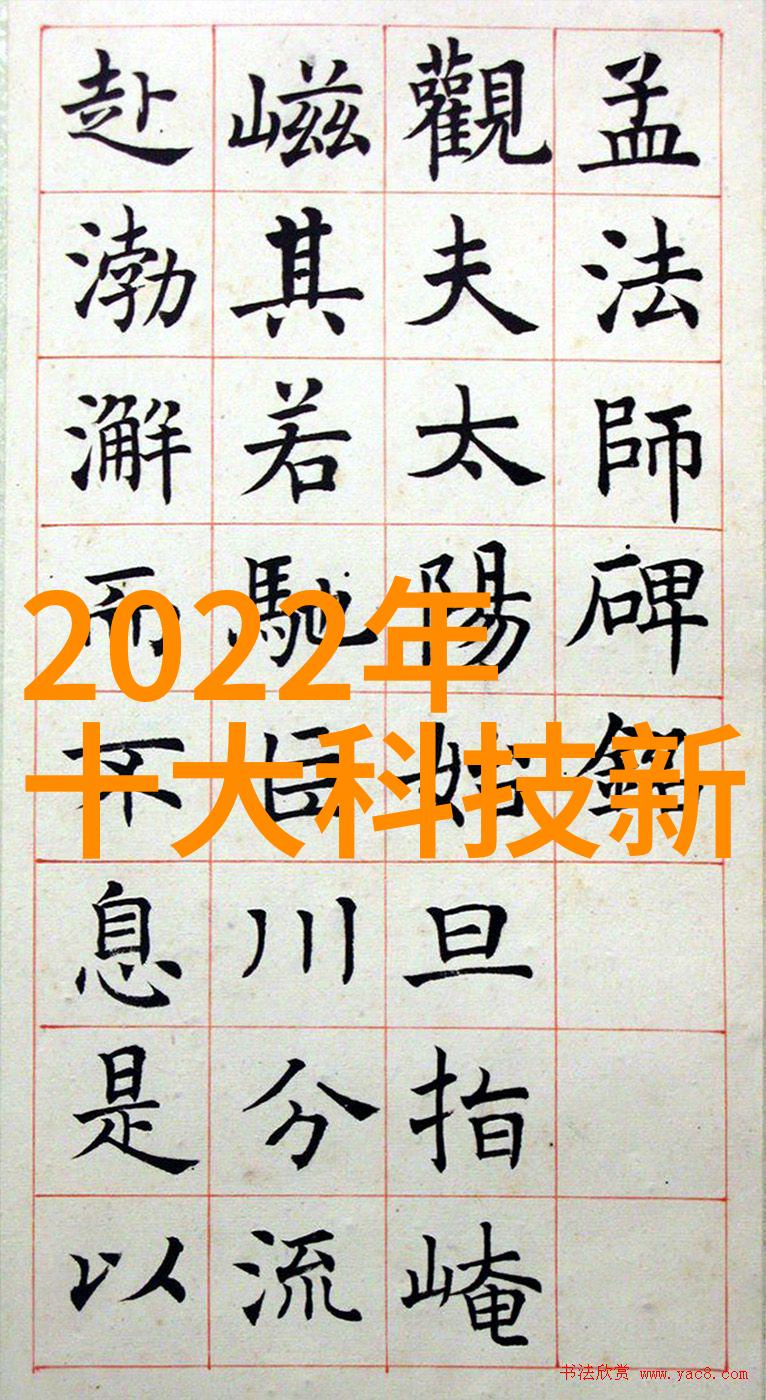 孟法師碑銘
觀夫太陽始旦指崦
嵫其若馳巨川分流
赴渤澥而不息是以
2022年
十大科技新
书法欣赏 www.yac8.com